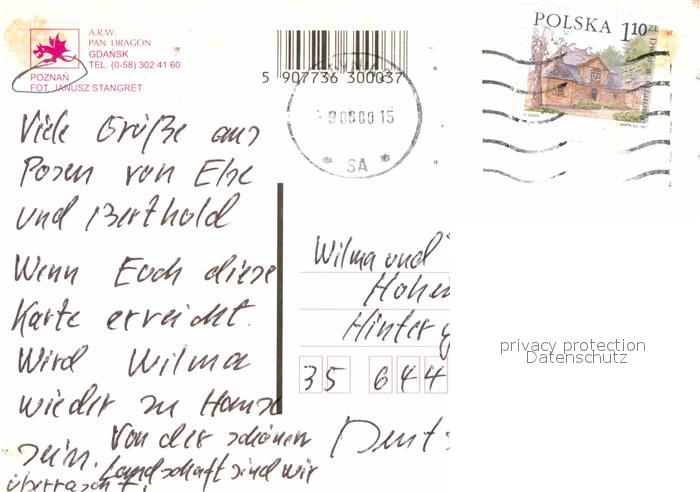 A.R.W.
PAN DRAGON
GDAŃSK
TEL. (0-58) 302 41 60
POZNAŃ
FOT. JANUSZ STANGRET
5 907736 300037
SA
POLSKA 1,10 ZŁ
Viele Grüße aus
Posen von Else
und Berthold
Wenn Euch diese
Karte erreicht.
Wird Wilma
wieder zu Hause
sein. Von der schönen
Landschaft sind wir
überrascht.
Wilma und
Hohen
Hinter
35 644
Deuts
privacy protection
Datenschutz